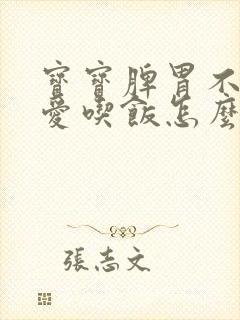 寶寶脾胃不
愛喫飯怎麼
張志文